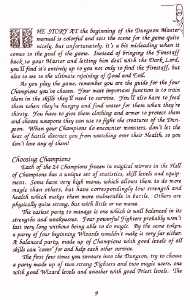 THE STORY AT the beginning of the Dungeon Master
manual is colorful and sets the scene for the game quite
nicely, but unfortunately, it's a bit misleading when it
comes to the goal of the game. Instead of bringing the Firestaff
back to your Master and letting him deal with the Dark Lord,
you'll find it's entirely up to you not only to find the Firestaff, but
also to see to the ultimate rejoining of Good and Evil.
As you play the game, remember you are the guide for the four
Champions you've chosen. Your most important function is to train
them in the skills they'll need to survive. You'll also have to feed
them when they're hungry and find water for them when they're
thirsty. You have to give them clothing and armor to protect them
and choose weapons they can use to fight the creatures of the Dun-
geon. When your Champions do encounter monsters, don't let the
heat of battle distract you from watching over their Health, so you
don't lose any of them!
Choosing Champions
Each of the 24 Champions frozen in magical mirrors in the Hall
of Champions has a unique set of statistics, skill levels and equip-
ment. Some have very high mana, which allows them to do more
magic than others, but have correspondingly low strength and
health which makes them more vulnerable in battle. Others are
physically quite strong, but with little or no mana.
The easiest party to manage is one which is well balanced in its
strengths and weaknesses. Four powerful fighters probably won't
last very long without being able to do magic. By the same token,
a party of four beginning Wizards wouldn't make it very far either.
A balanced party, made up of Champions with good levels of all
skills can "cover" for and help each other survive.
The first few times you venture into the Dungeon, try to choose
a party made up of two strong Fighters and two magic users, one
with good Wizard levels and another with good Priest levels. The